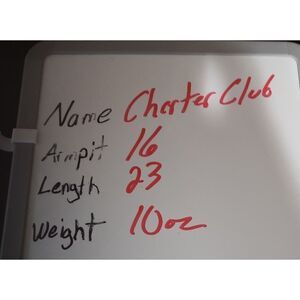 Name Charter Club
Armpit 16
Length 23
Weight 10oz